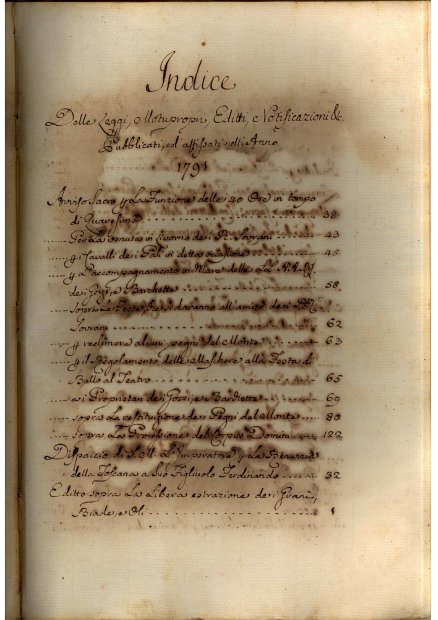 Indice
Delle Leggi, Motuproprj, Editti, e Notificazioni &c.
Pubblicati, ed affissati nell' Anno
1791
Avviso Sacro p. La Funzione delle 40 Ore in tempo
di Quaresima 38
Per La Venuta in Livorno de i R. Sovrani 43
p. i Cavalli de i di detta occasione 45
p. L'accompagnamento in Mare delle LL. A.A.
de i Gozzi, e Barchetta 58
sopra Le Feste, che si daranno all'arrivo de i RR.
Sovrani 62
p. redimere alcuni pegni del Monte 63
p. il Regolamento delle Maschere alla Festa di
Ballo al Teatro 65
a i Proprietari de i Gozzi, e Barchette 69
sopra La restituzione de i Pegni del Monte 80
sopra La Processione del Corpus Domini 122
Dispaccio di S. M. L'Imperatore p. La Renunzia
della Toscana a Suo Figliuolo Ferdinando 32
Editto sopra La Libera estrazione de i Grani,
Biade, e Oli 1